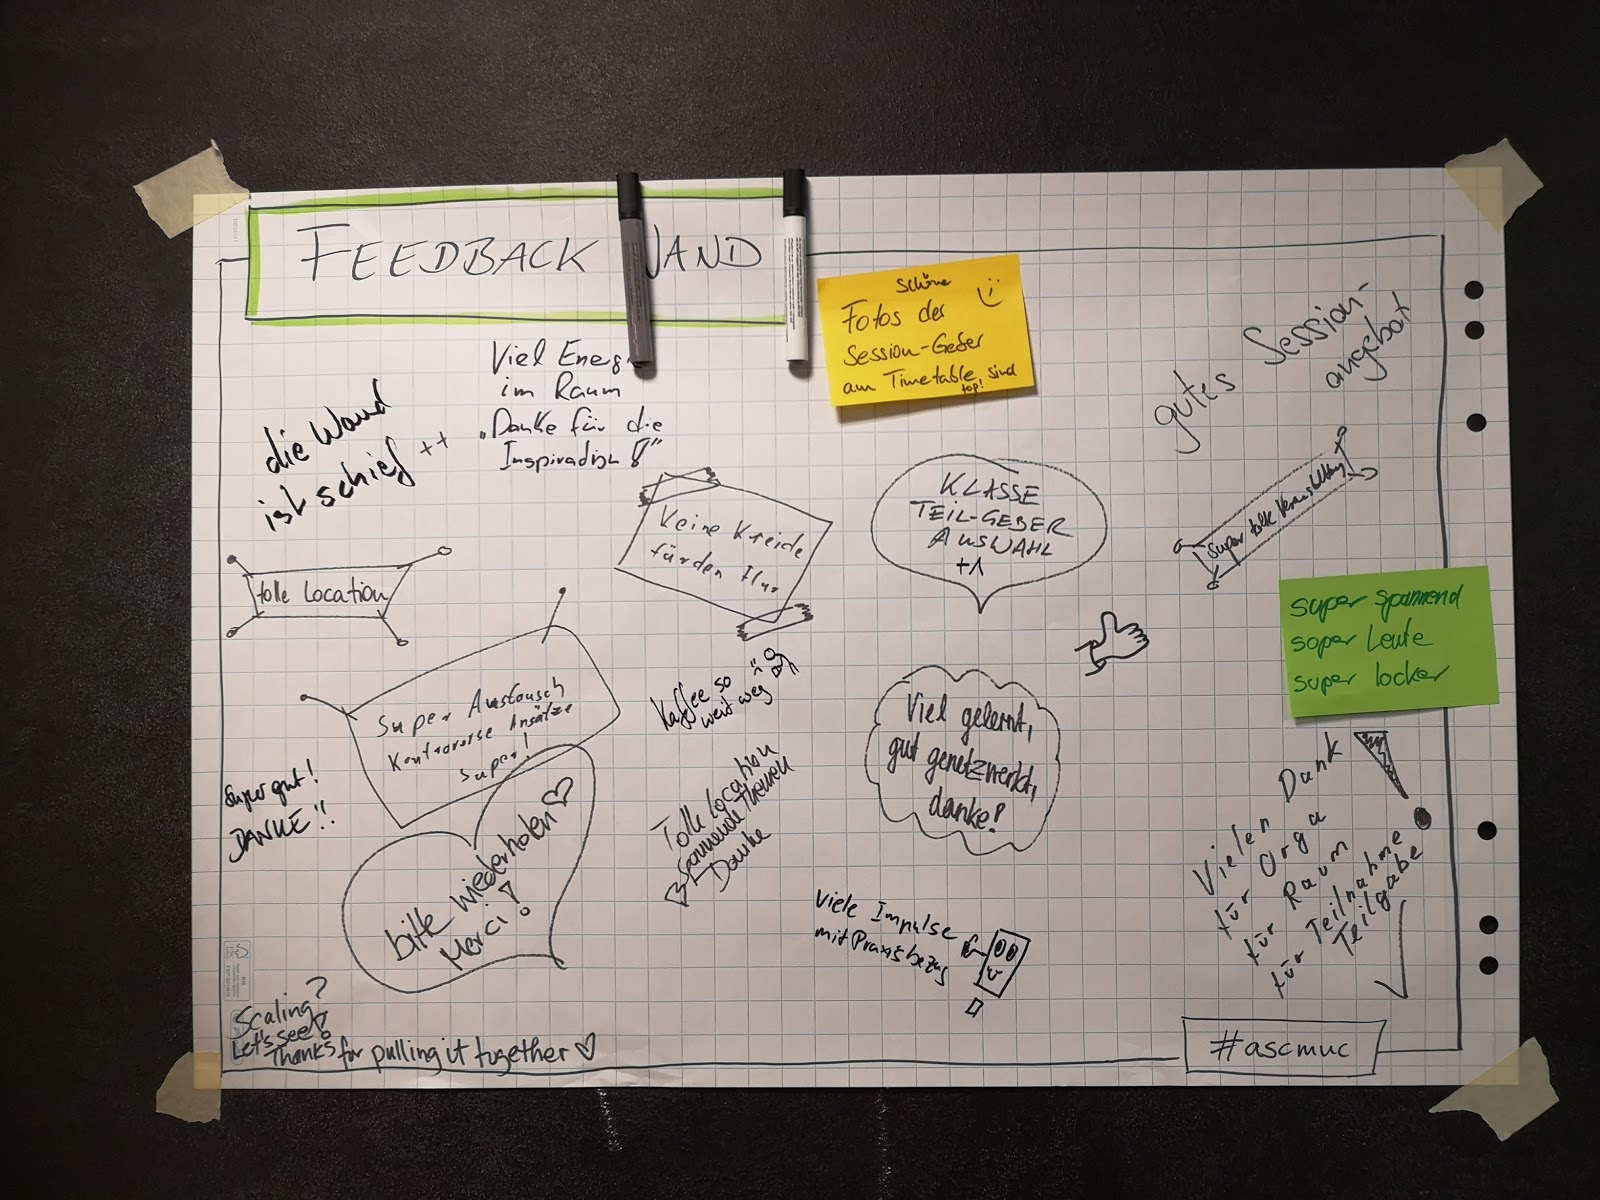 FEEDBACK WAND
schöne
Fotos der
Session-Geber
am Timetable sind
top!
Viel Energ
im Raum
„Danke für die
Inspiration!"
die Wand
ist schief ++
gutes Session-
angebot
Keine Kreide
für den Flur
KLASSE
TEIL-GEBER
AUSWAHL
+1
super tolle Veranstaltung
tolle Location
super spannend
soper Leute
super locker
Super Austausch
Kontroverse Ansätze
Super!
Kaffee so
weit weg
Viel gelernt,
gut genetzwerkt,
danke!
Super gut!
DANKE!!
Tolle Location
Spannende Themen
Danke
bitte wiederholen
Merci!
Vielen Dank
für Orga
für Raum
für Teilnahme
Teilgabe
Viele Impulse
mit Praxisbezug
Scaling?
Let's see!
Thanks for pulling it together
#ascmuc